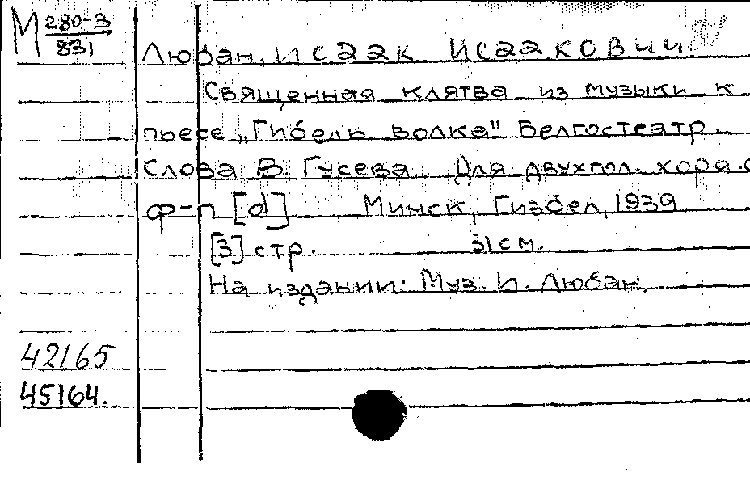 М 280-3
831
Любан, Исаак Исаакович.
Священная клятва из музыки к
пьесе „Гибель волка" Белгостеатр.
Слова В. Гусева. Для двухгол. хора с
ф-п [d] Минск, Гизбел, 1939
[3] стр. 31 см.
На издании: Муз. И. Любан.
42165
45164.